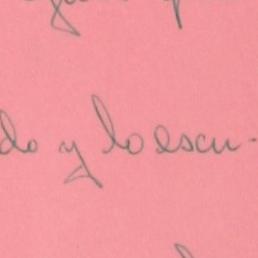 do y lo escu-